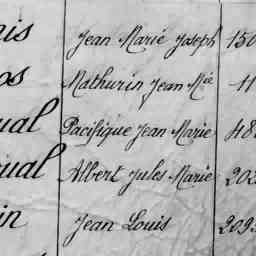 is Jean Marie Joseph 150
os Mathurin Jean Mie 11
ual Pacifique Jean Marie 48
ual Albert Jules Marie 202
in Jean Louis 209